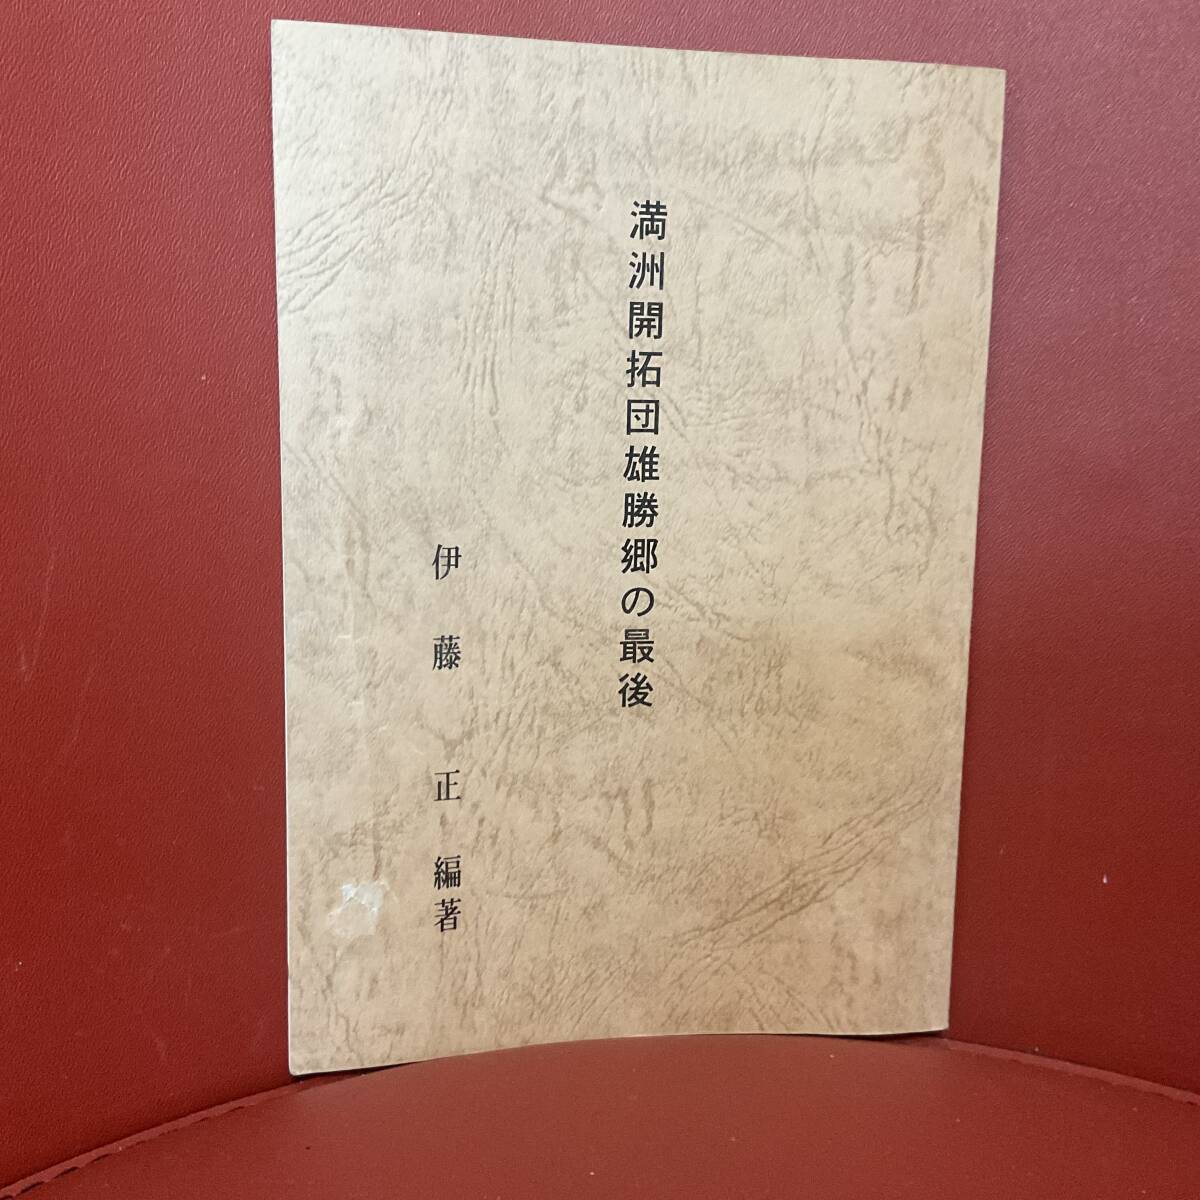 満洲開拓団雄勝郷の最後
伊藤正編著